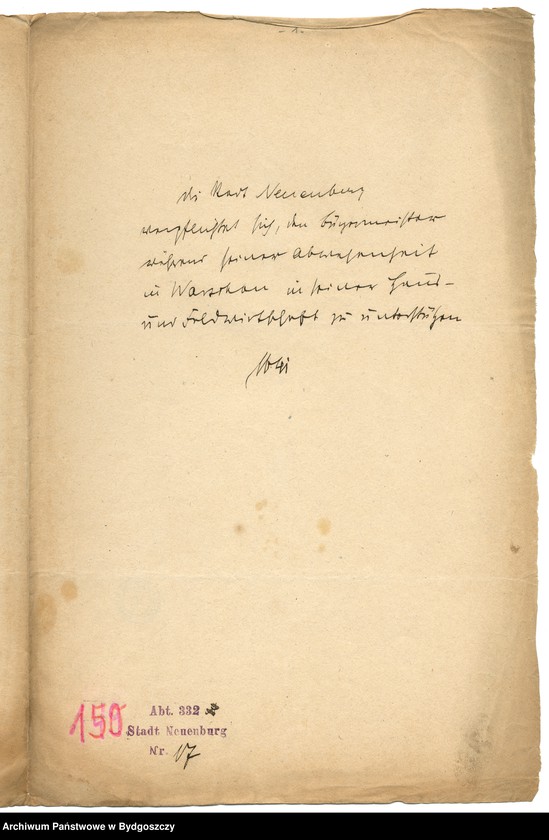 - 1 -
die Stadt Neuenburg
verpflichtet sich, den Bürgermeister
während seiner Abwesenheit
in Warschau in seiner Haus-
und Feldwirthschaft zu unterstützen
150
Abt. 332
Stadt Neuenburg
Nr. 17
Archiwum Państwowe w Bydgoszczy